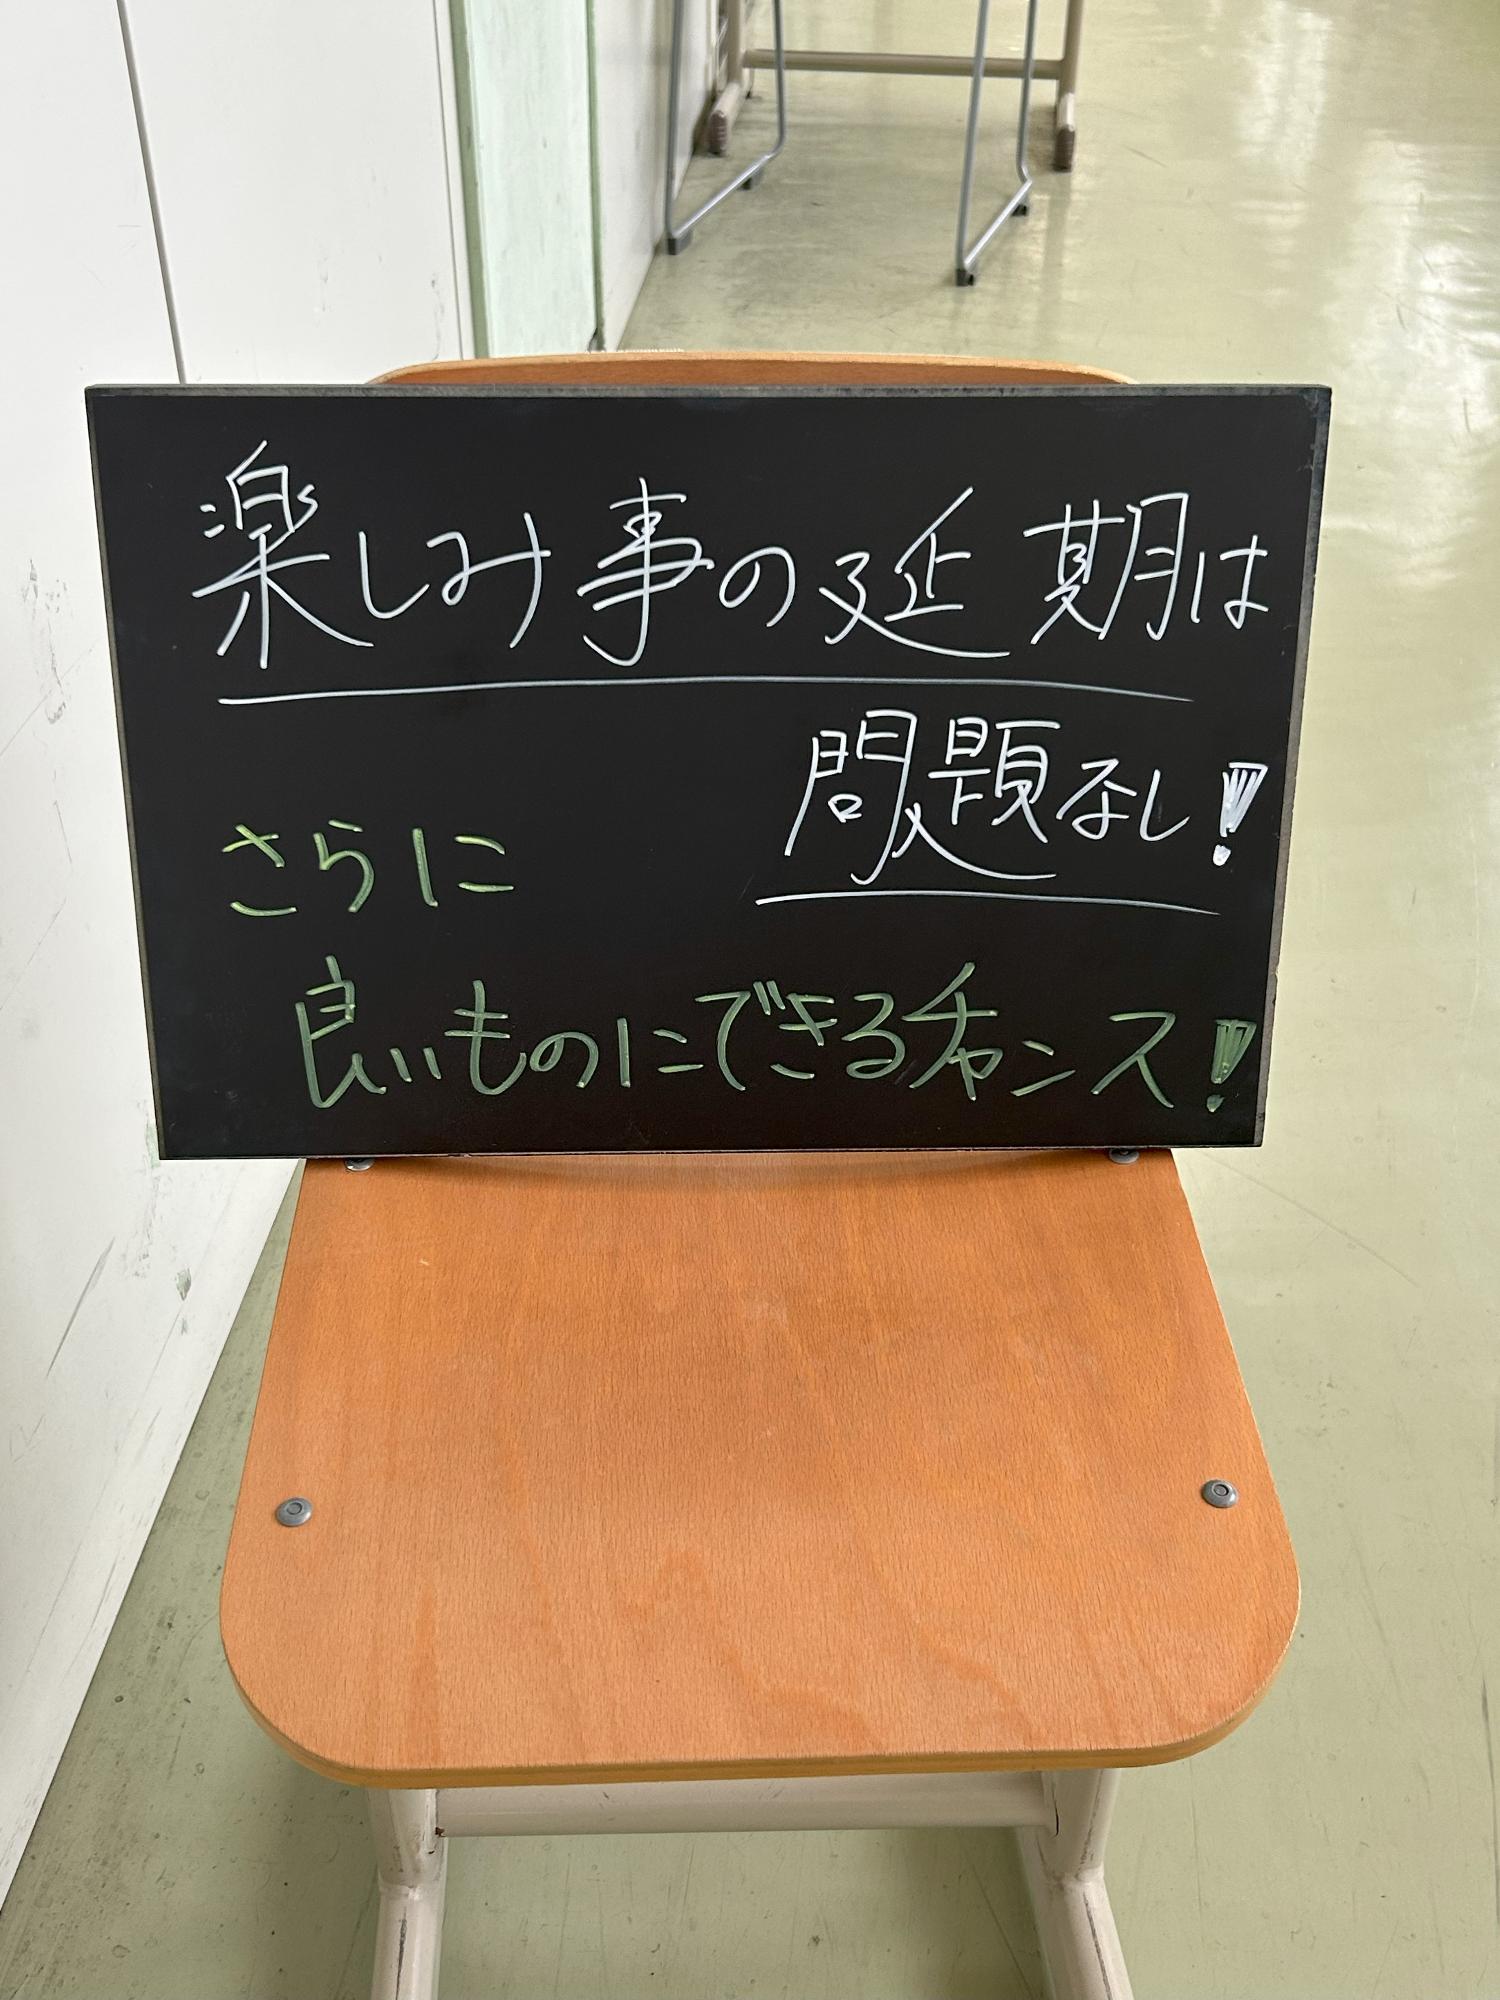 楽しみ事の延期は
問題なし!
さらに
良いものにできるチャンス!